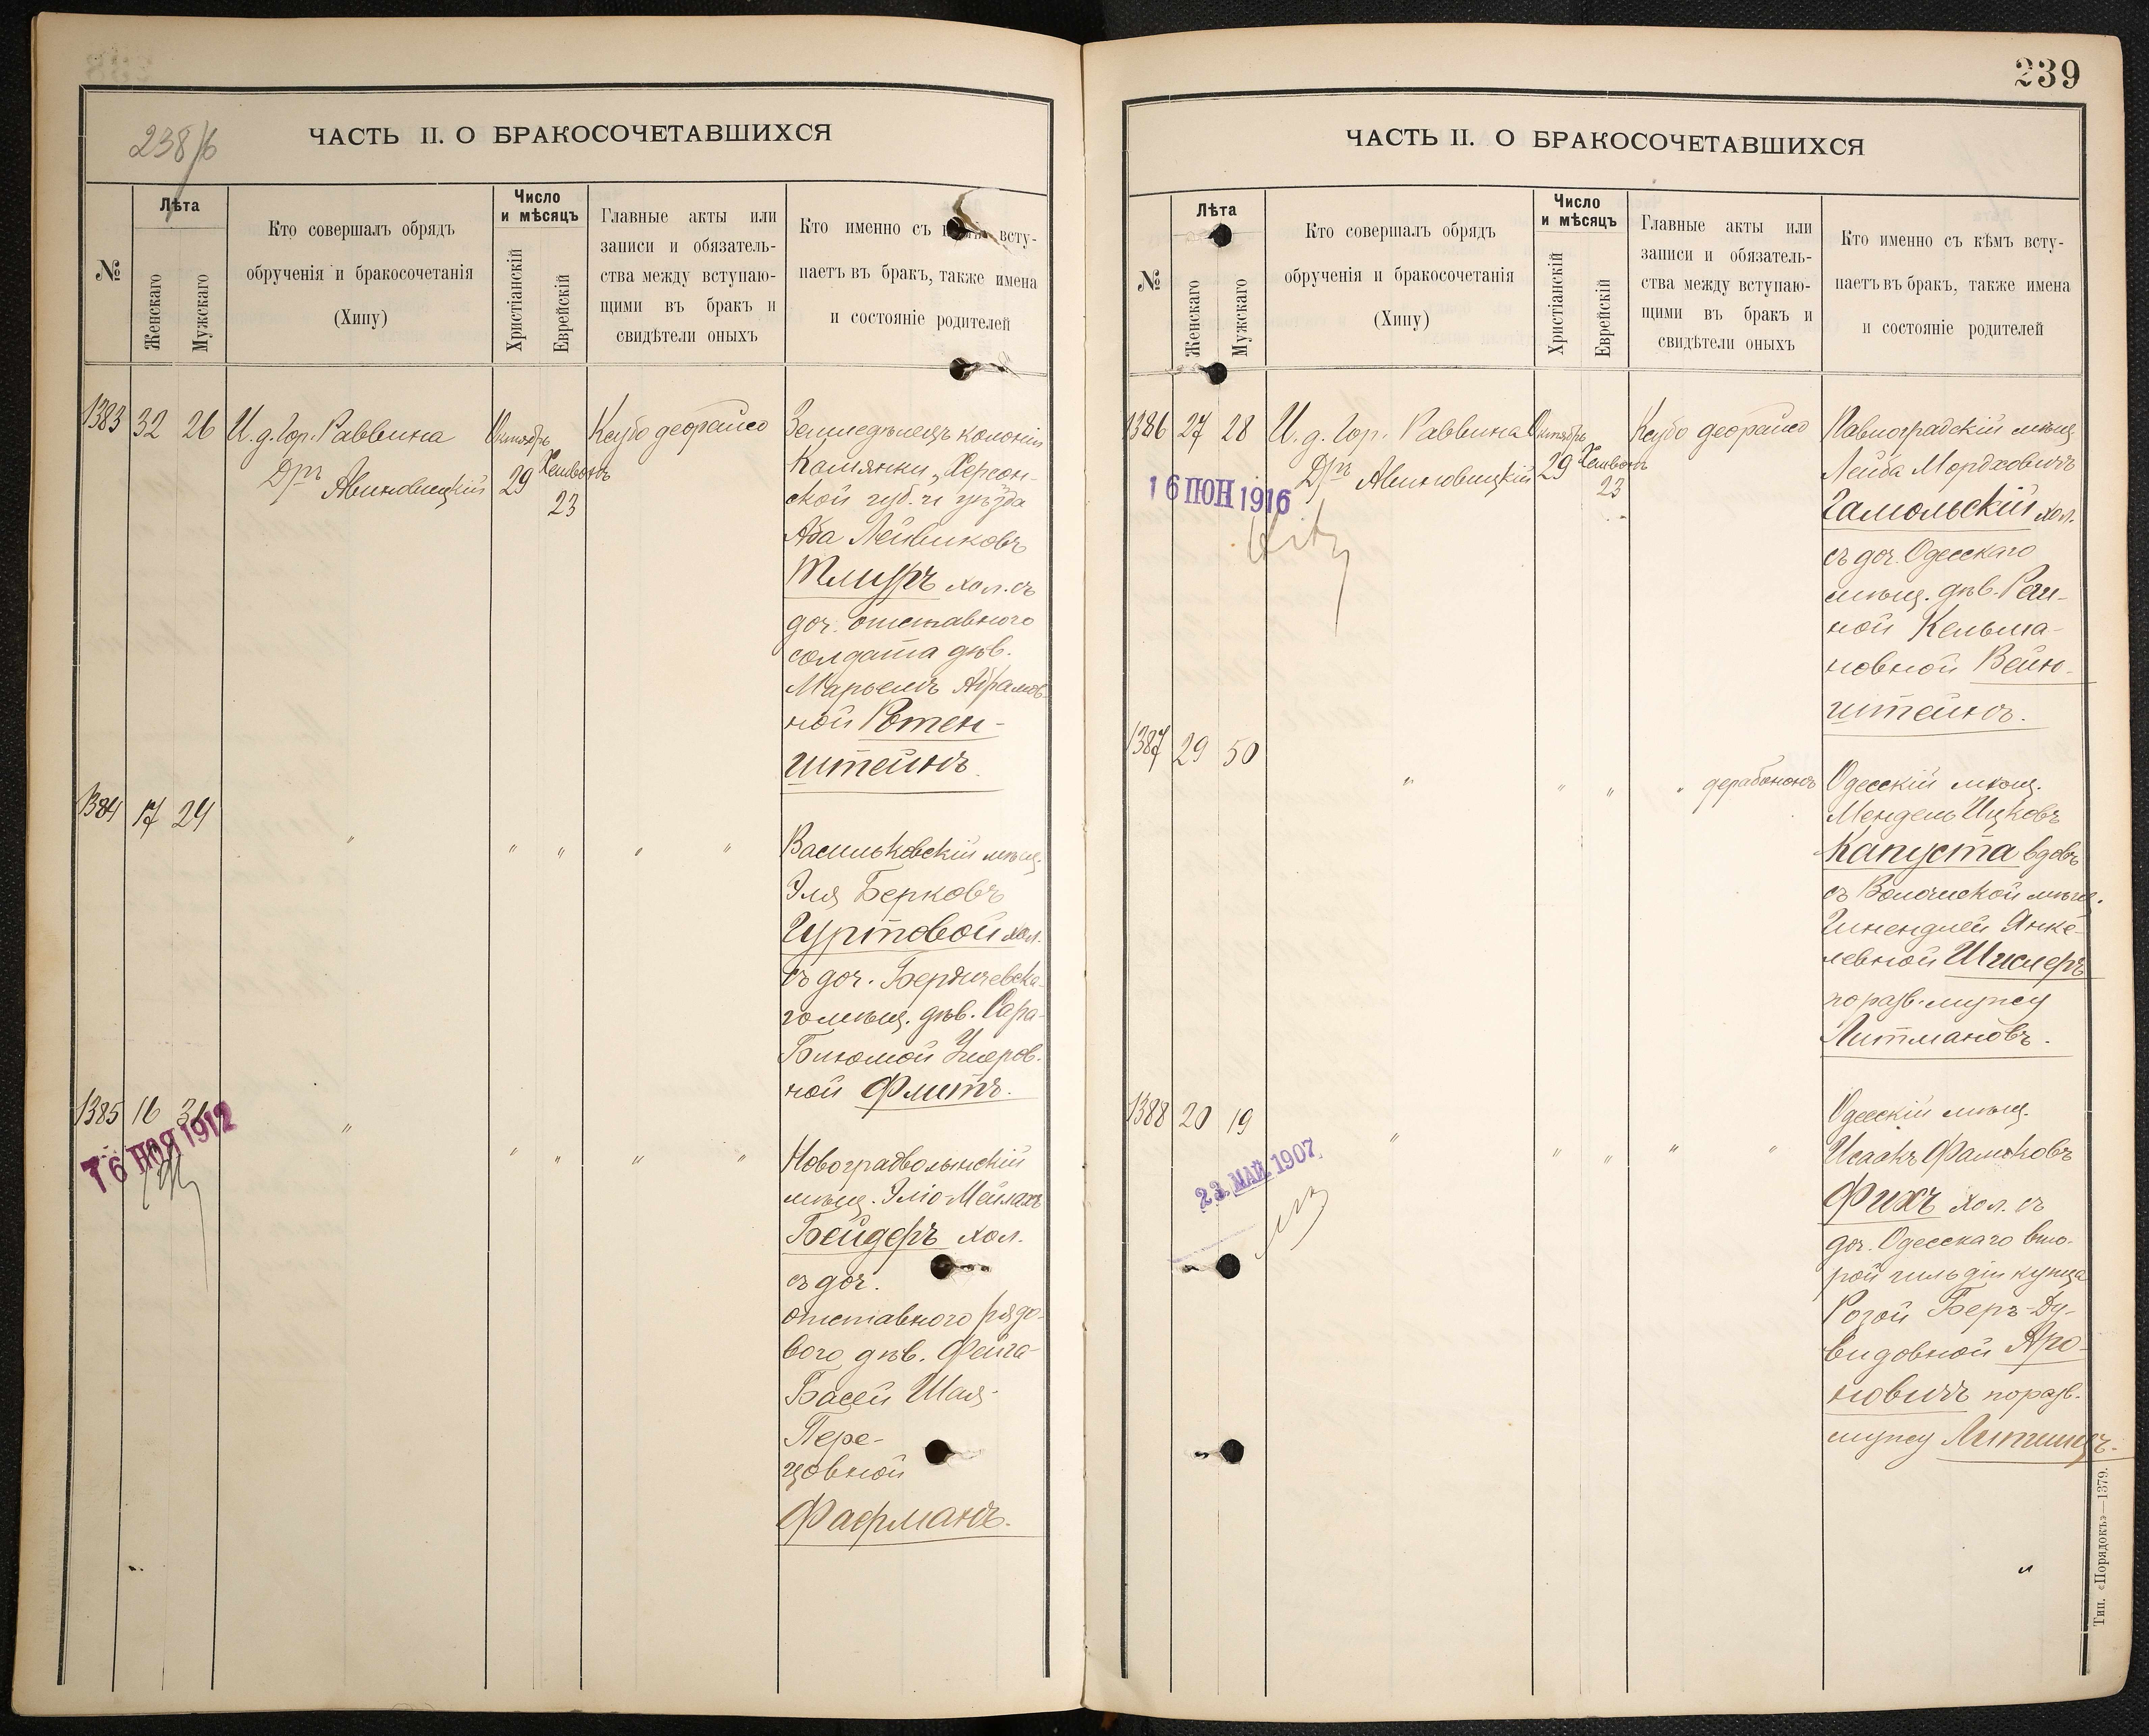 238/б
ЧАСТЬ II. О БРАКОСОЧЕТАВШИХСЯ
№
Лѣта
Женскаго
Мужскаго
Кто совершалъ обрядъ
обрученія и бракосочетанія
(Хипу)
Число
и мѣсяцъ
Христіанскій
Еврейскій
Главные акты или
записи и обязатель-
ства между вступаю-
щими въ бракъ и
свидѣтели оныхъ
Кто именно съ всту-
паетъ въ бракъ, также имена
и состояніе родителей
1383 32 26 И. д. Гор. Раввина Октябрь Ксубо деорайсо
Дръ Авиновицкій 29 Хешвонъ
23
Земледѣлецъ колоніи
Камянки, Херсон-
ской губ. и уѣзда
Аба Лейвиковъ
Тлигръ хол. съ
доч. отставного
солдата дѣв.
Марьемъ Абрамов-
ной Ротен-
штейнъ.
1384 17 24 " " " " "
Васильковскій мѣщ.
Эля Берковъ
Гуртовой хол.
съ доч. Бердичевска-
го мѣщ. дѣв. Сара-
Блюмой Ушеров-
ной Флитъ.
1385 16 " " " " "
16 НОЯ 1912
Новоградволынскій
мѣщ. Эліо-Мейлахъ
Бейдеръ хол.
съ доч.
отставного рядо-
вого дѣв. Фейга-
Басей Шая-
Пере-
цовной
Фаерманъ.
239
ЧАСТЬ II. О БРАКОСОЧЕТАВШИХСЯ
№
Лѣта
Женскаго
Мужскаго
Кто совершалъ обрядъ
обрученія и бракосочетанія
(Хипу)
Число
и мѣсяцъ
Христіанскій
Еврейскій
Главные акты или
записи и обязатель-
ства между вступаю-
щими въ бракъ и
свидѣтели оныхъ
Кто именно съ кѣмъ всту-
паетъ въ бракъ, также имена
и состояніе родителей
1386 27 28 И. д. Гор. Раввина Октябрь Ксубо деорайсо
Дръ Авиновицкій 29 Хешвонъ
23
16 ІЮН 1916
Павлоградскій мѣщ.
Лейба Мордховичъ
Гамольскій хол.
съ доч. Одесскаго
мѣщ. дѣв.
ной Кельма-
новной Вейн-
штейнъ.
1387 29 50 " " " " дерабононъ
Одесскій мѣщ.
Мендель Ицковъ
Капуста вдовъ
съ мѣщ.
Шнендлей Янке-
левной
по разв. мужу
Литмановъ.
1388 20 19 " " " " "
23 МАЙ 1907
Одесскій мѣщ.
Исаакъ
Фихъ хол. съ
доч. Одесскаго вто-
рой гильдіи купца
Розой Беръ-Ду-
видовной Аро-
новичъ по разв.
мужу
Тип. «Порядокъ»—1379.